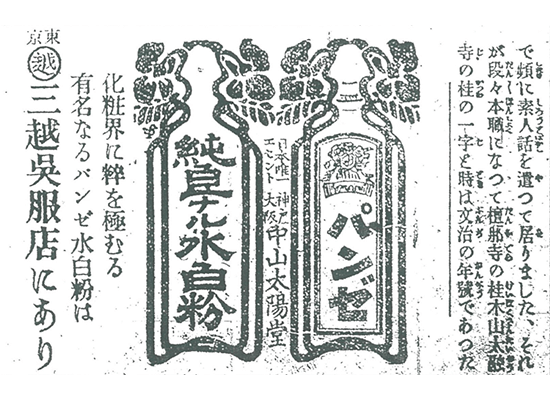 で頻に素人話を遣つて居りました、それ
が段々本職になつて檀那寺の桂木山太融
寺の桂の一字と時は文治の年號であつた
パンゼ
日本唯一 神戸
エゼント 大阪
中山太陽堂
純白ナル水白粉
化粧界に粋を極むる
有名なるパンゼ水白粉は
東京
越
三越呉服店にあり